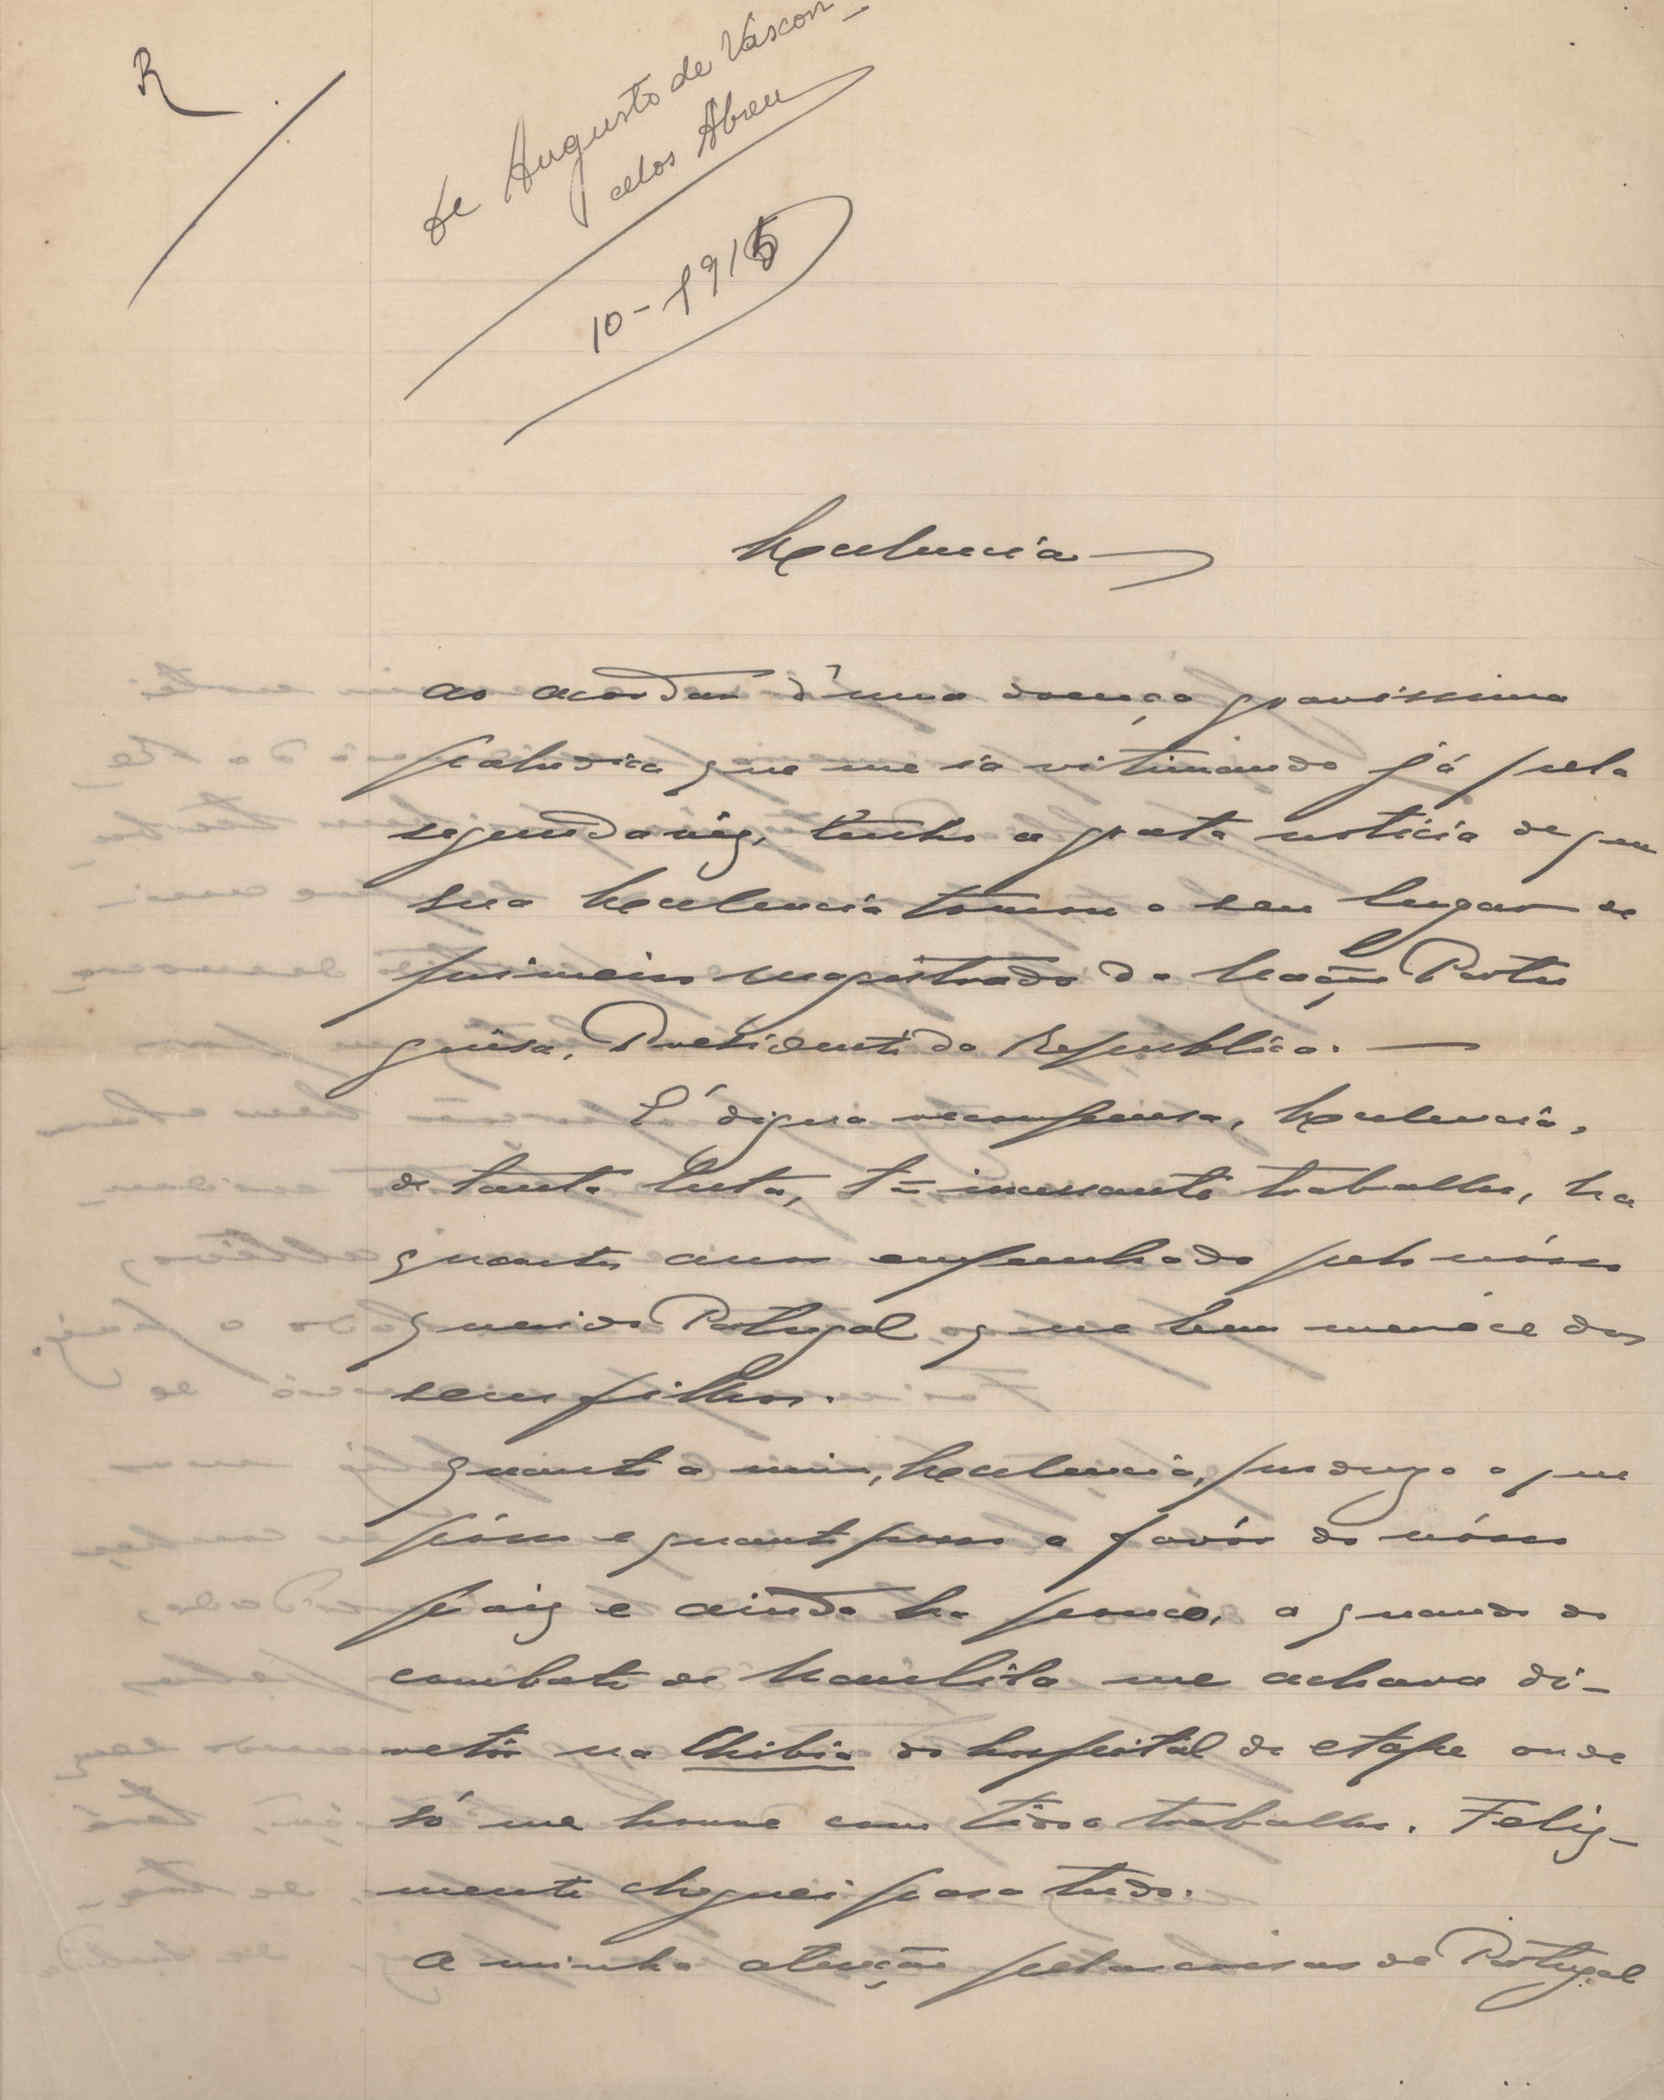 R
de Augusto de Vascon-
celos Abreu
10-1915
Excelencia
ao acordar d'uma doença gravissima
paludica que me ia vitimando já pela
segunda vêz, tenho a grata noticia de que
sua Excelencia tomou o seu lugar de
primeiro magistrado da Nação Portu
guêsa, Presidente da Republica.
É digna recompensa, Excelencia,
de tanta luta, tão incessante trabalho, ha
quantos anos empenhado pelo nósso
querido Portugal que bem meréce dos
seus filhos.
Quanto a mim, Excelencia, produzo o que
pósso e quanto posso a favôr do nósso
paiz e ainda ha pouco, a quando do
combate de Naulila me achava di-
retôr na Chibia do hospital de etape onde
só me houve com todo o trabalho. Feliz-
mente cheguei para tudo.
A minha atenção pelas coisas de Portugal